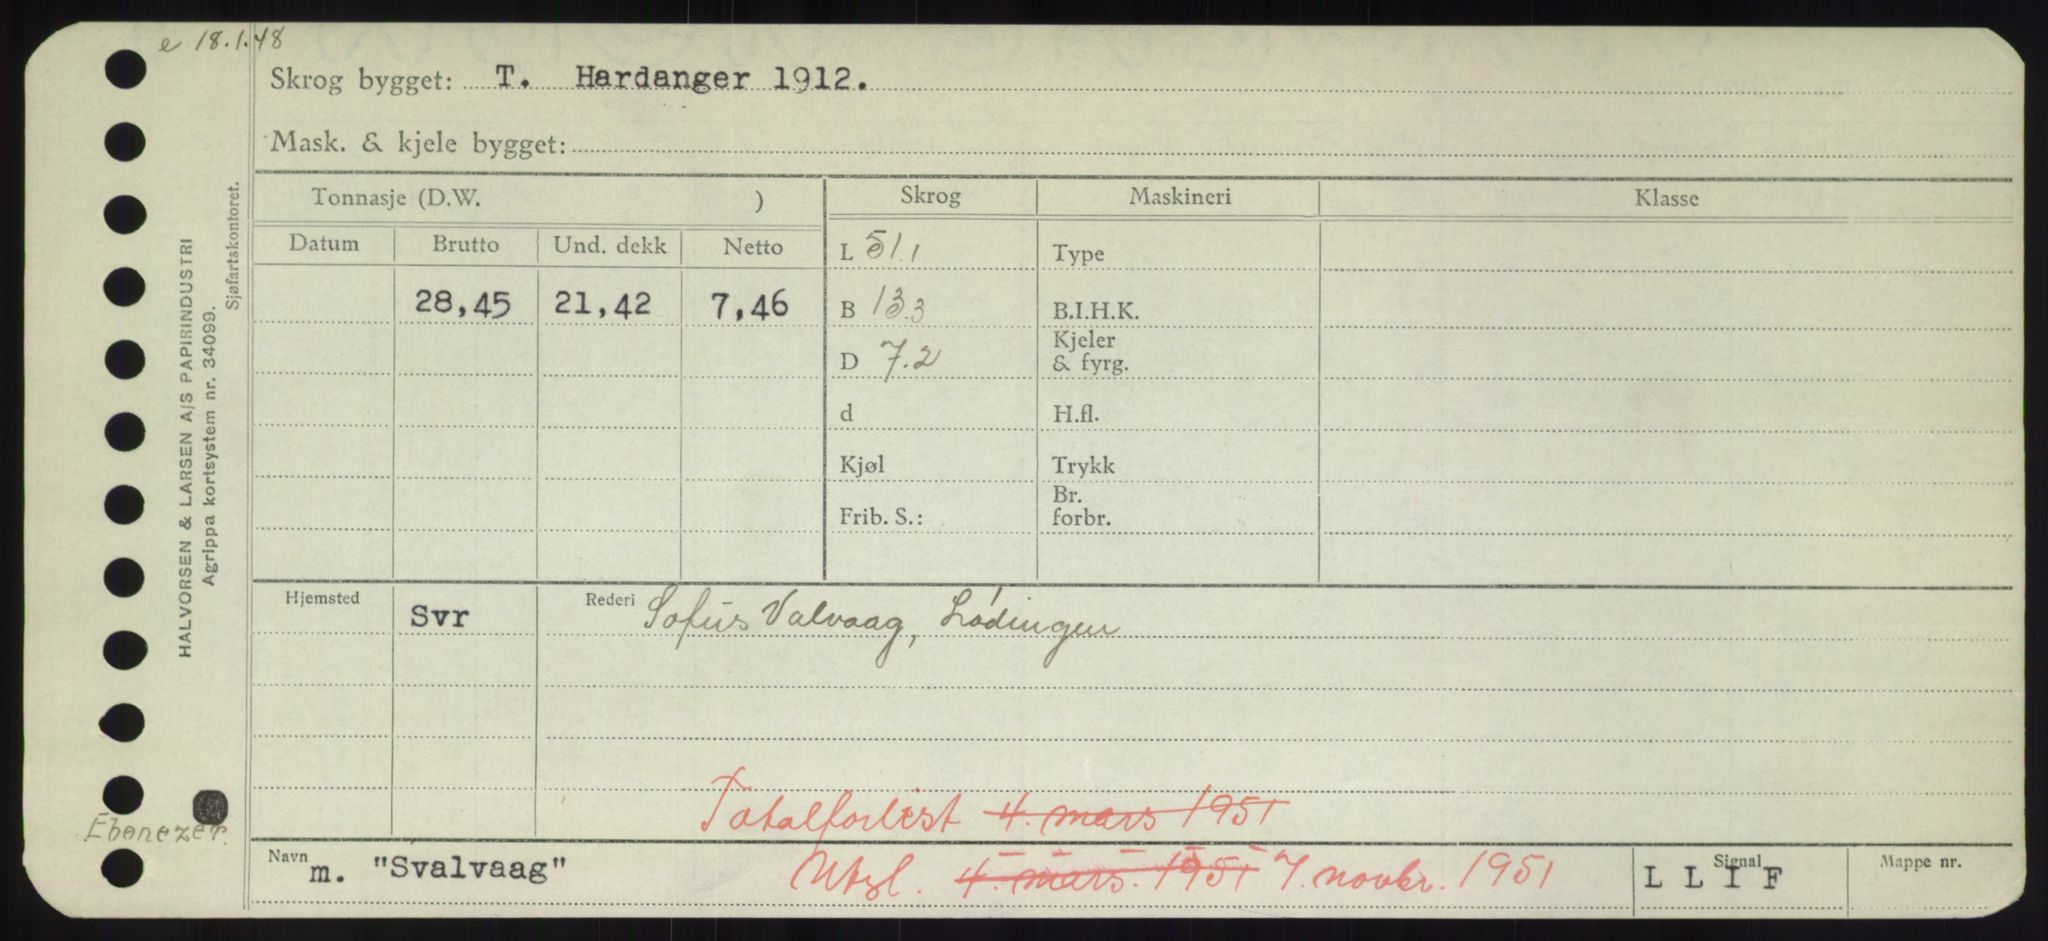 e 18.1.48
Skrog bygget: T. Hardanger 1912.
Mask. & kjele bygget:
Tonnasje (D.W. ) Skrog Maskineri Klasse
Datum Brutto Und. dekk Netto L 51,1 Type
28,45 21,42 7,46 B 13.3 B.I.H.K.
D 7.2 Kjeler & fyrg.
d H.fl.
Kjøl Trykk
Frib. S.: Br. forbr.
Hjemsted Svr Rederi Sofus Valvaag, Lødingen
Totalforlist 4. mars 1951
Navn m. "Svalvaag" Utgl. 4. mars. 1951 7. novbr. 1951 Signal L L I F Mappe nr.
HALVORSEN & LARSEN A/S PAPIRINDUSTRI
Agrippa kortsystem nr. 34099.
Sjøfartskontoret.
Ebenezer.